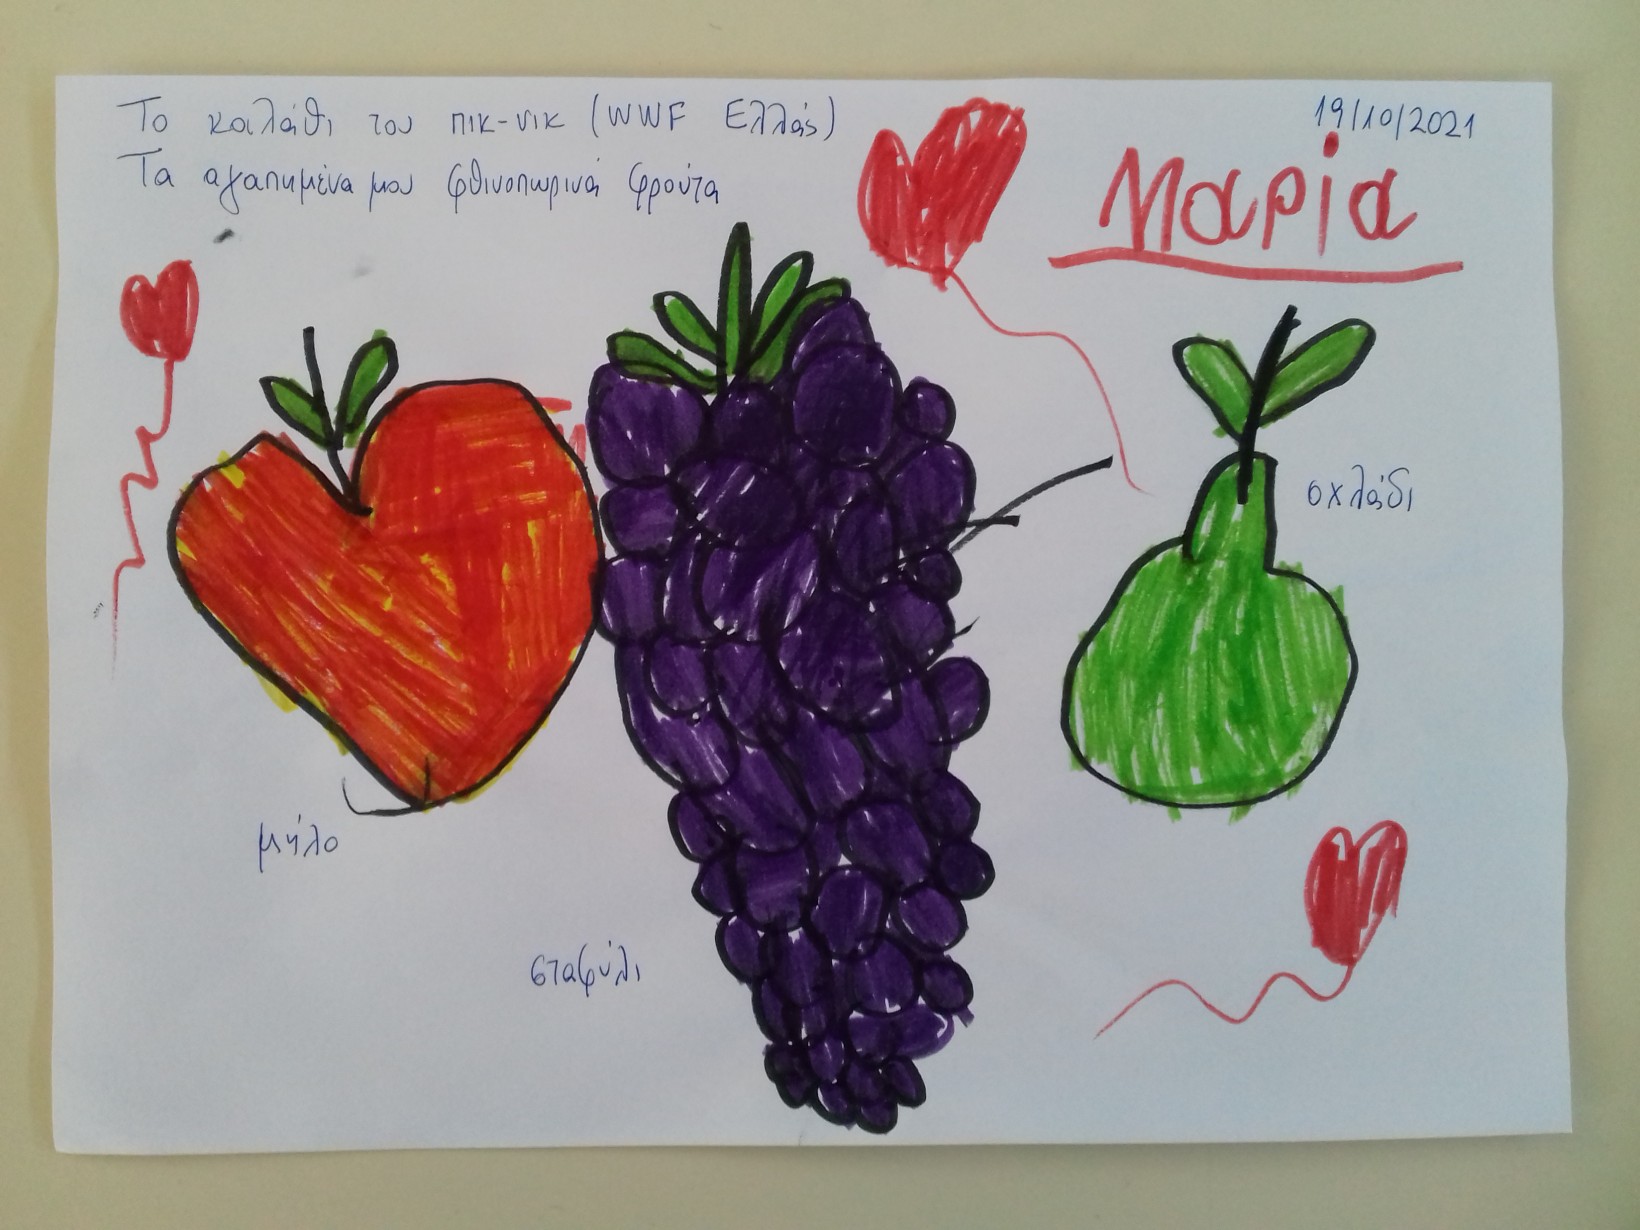 Το καλάθι του πικ-νικ (WWF Ελλάς)
Τα αγαπημένα μου φθινοπωρινά φρούτα
19/10/2021
Μαρία
αχλάδι
μήλο
σταφύλι